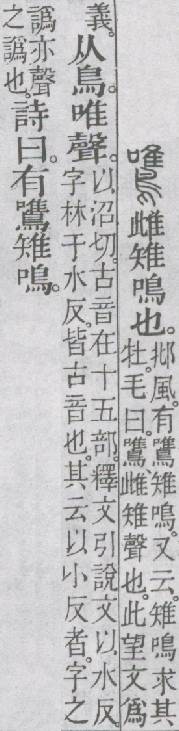 鷕雌雉鳴也。
邶風。有鷕雉鳴。又云。雉鳴求其
牡。毛曰。鷕雌雉聲也。此望文爲
義。
从鳥。唯聲。
以沼切。古音在十五部。釋文引說文以水反。
字林于水反。皆古音也。其云以小反者。字之
譌亦聲
之譌也。
詩曰。有鷕雉鳴。